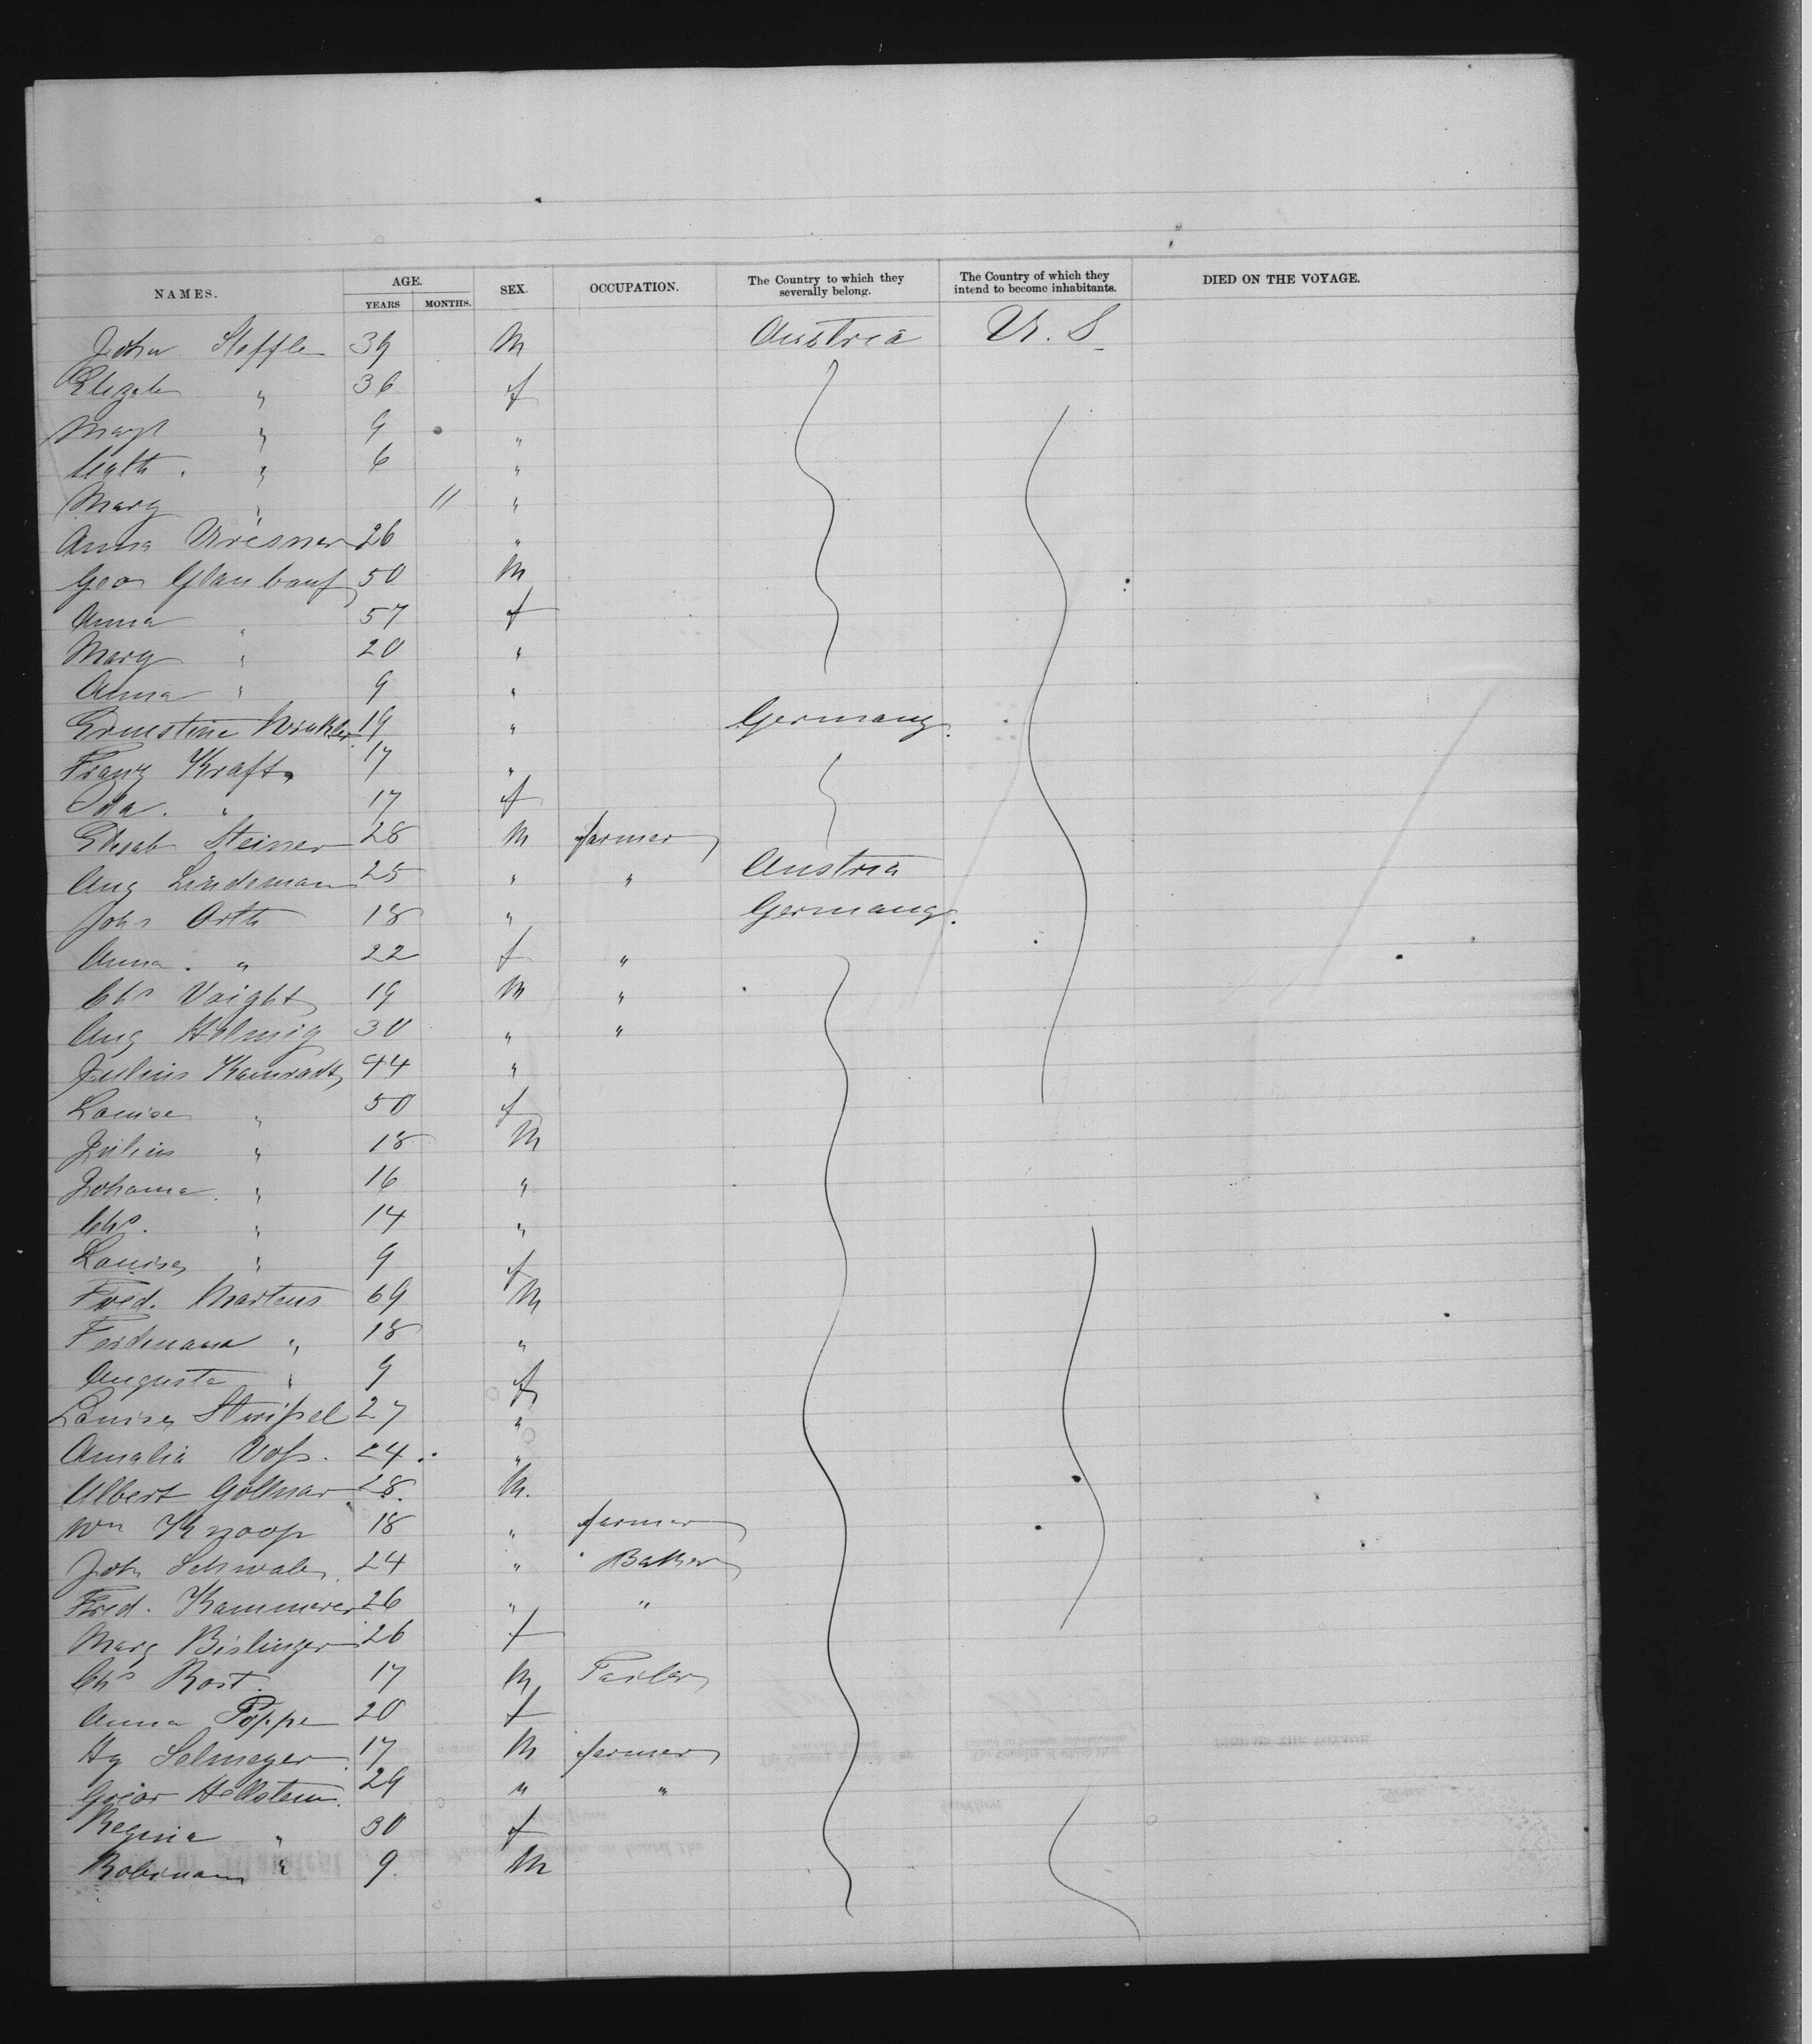 NAMES. AGE. YEARS MONTHS. SEX. OCCUPATION. The Country to which they severally belong. The Country of which they intend to become inhabitants. DIED ON THE VOYAGE.
John Steffle 39 M Austria U.S
Elizab " 36 f
Mary " 9 "
Kath. " 6 "
Marg " 11 "
Anna 26 "
Geo 50 M
Anna " 57 f
Marg " 20 "
Anna " 9 "
Ernestine Winkler 19 " Germany.
Franz Kraft 17 "
Ida. " 17 f
Elisab Steiner 28 M farmer
Aug Lindeman 25 " " Austria
John Orth 18 " Germany.
Anna. " 22 f "
Chs Voight 19 M "
Aug Helmig 30 " "
Julius Kamradt 44 "
Louise " 50 f
Julius " 18 M
Johanna " 16 "
Chs. " 14 "
Louise " 9 f
Fred. Martens 69 M
Ferdinand " 18 "
Auguste " 9 f
Louise 27 "
Amalia Voss. 24 "
Albert Gollnar 28. M.
Wm Knoop 18 " farmer
John Schwab 24 " Baker
Fred. Kammerer 26 " "
Marg Bislinger 26 f
Chs Rost. 17 M Tailor
Anna Poppe 20 f
Hy Selmeyer 17 M farmer
Hellstern 29 " "
Regina " 30 f
" 9. M